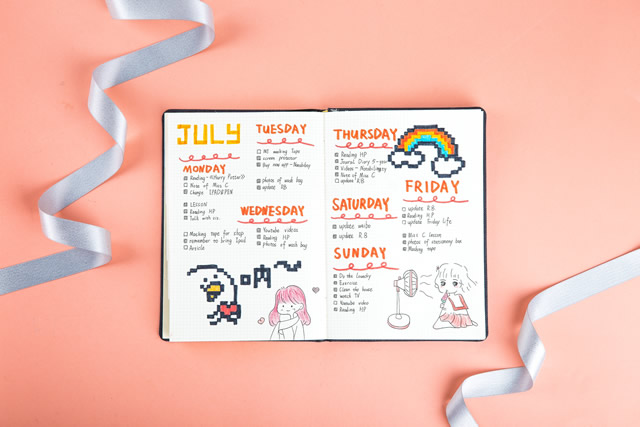 JULY
MONDAY
Reading - (Harry Potter)
Nose of Miss C
Change
LESSON
Reading HP
Talk with
Masking tape for shop
remember to bring Ipad
Article
TUESDAY
making Tape
screen protector
Buy new
photos of wash bag
update RB
WEDNESDAY
Youtube video
Reading HP
photos of wash bag
THURSDAY
Reading HP
Journal Diary
Videos -
Nose of Miss C
update RB
FRIDAY
update RB
Reading HP
update Friday Life
Miss C lesson
photos of stationery box
Masking tape
SATURDAY
update
update RB
SUNDAY
Do the laundry
Exercise
Clean the house
watch TV
Youtube video
Reading HP